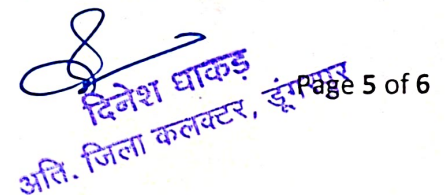 दिनेश धाकड़
अति. जिला कलक्टर,
Page 5 of 6